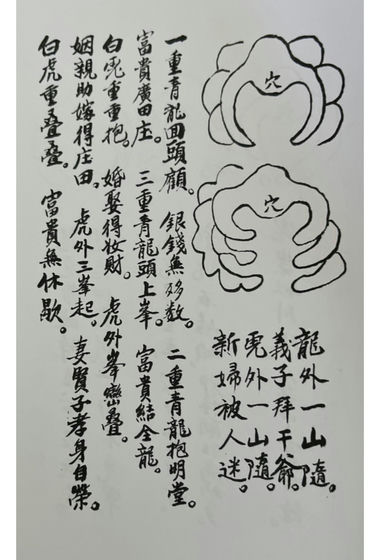 穴
穴
龍外一山隨。
義子拜干爺。
兎外一山隨。
新婦被人迷。
一重青龍回頭顧。銀錢無夛数。二重青龍抱明堂。
富貴廣田庄。三重青龍頭上峯。富貴結全龍。
白兎重重抱。婚娶得妝財。虎外峯巒叠。
姻親助嫁得庄田。虎外三峯起。妻賢子孝身自榮。
白虎重叠叠。富貴無休歇。